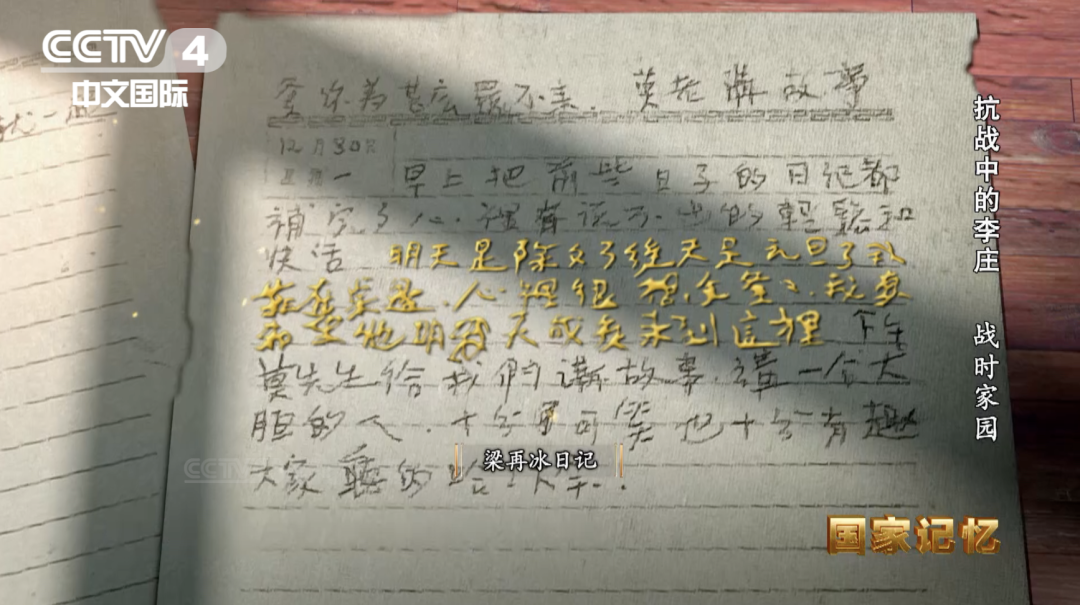 CCTV 4
中文国际
爹你为甚么还不来.莫老講故事
12月30日
星期一
早上把前些日子的日纪都
補完了心.裡有说不出的輕鬆和
快活 明天是除夕了後天是元旦了我
心裡很想爹爹.我
他明天或後天来到這裡 下午
莫先生给我們講故事.講一个大
胆的人.十分可笑也十分有趣
大家聽的哈哈大笑.
梁再冰日记
抗战中的李庄 战时家园
国家记忆
CCTV